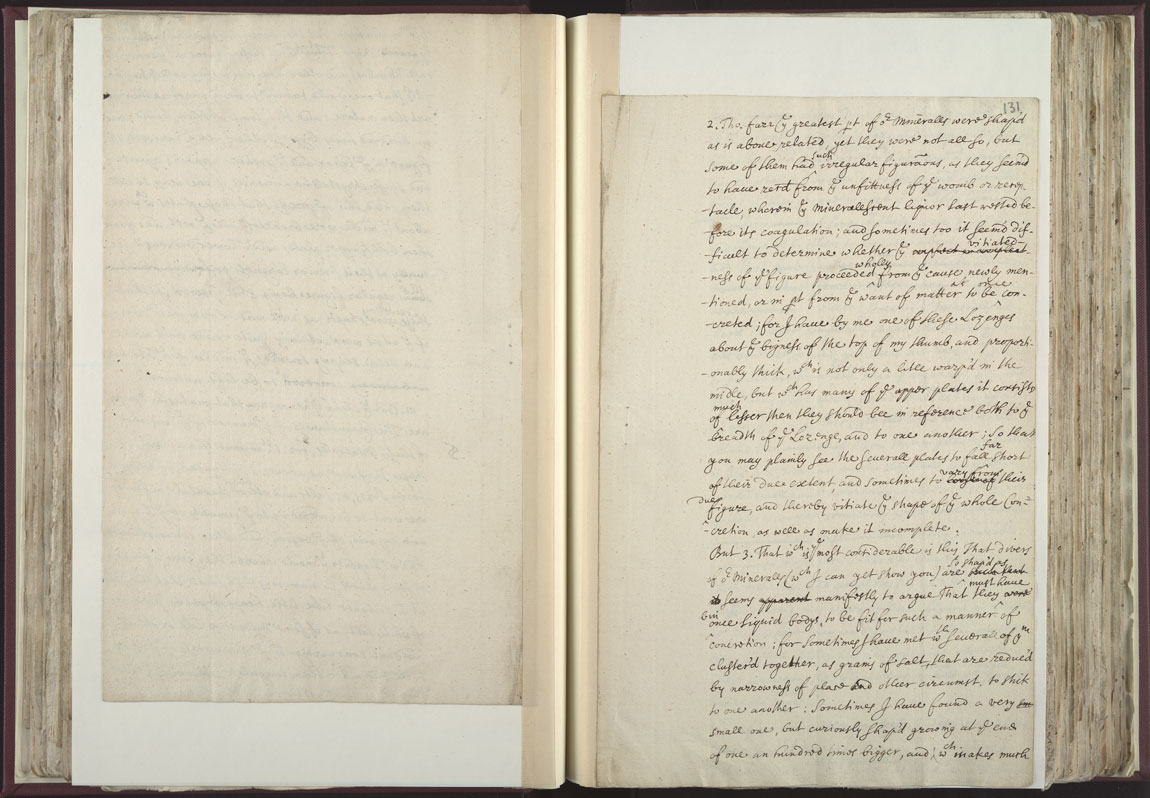 131
2. Tho. farr ye greatest pt of ye Mineralls were shap'd
as is above related, yet they were not all so, but
some of them had such irregular figuraōns, as they seem'd
to have recd from ye unfittness of ye womb or recep-
-tacle, wherein ye Minerallescent liquor last rested be-
-fore its coagulation; and sometimes too it seem'd dif-
-ficult to determine whether ye vitiated-
-ness of ye figure proceeded wholly from ye cause newly men-
-tioned, or in pt from ye want of matter to be con-
-creted; for I have by me one of these Lozenges
about ye bigness of the top of my thumb, and proporti-
-onably thick, wch is not only a litle warp'd in the
midle, but wch has many of ye upper plates it consists
of much lesser then they should bee in reference both to ye
breadth of ye Lozenge, and to one another; so that
you may plainly see the severall plates to fall far short
of their due extent, and sometimes to vary from their
due figure, and thereby vitiate ye shape of ye whole Con-
-cretion, as well as make it incomplete.
But 3. That wch is ye most considerable is this, That divers
of ye Mineralls (wch I can yet show you) are so shap'd as
it seems apparent manifestly to argue That they must have
bin once liquid bodys, to be fit for such a manner of
concretion; for sometimes I have met wth severall of ym
cluster'd together, as grains of salt, that are reduc'd
by narrowness of place and other circumst. to stick
to one another: Sometimes I have found a very
small one, but curiously shap'd growing at ye end
of one an hundred times bigger, and wch makes much